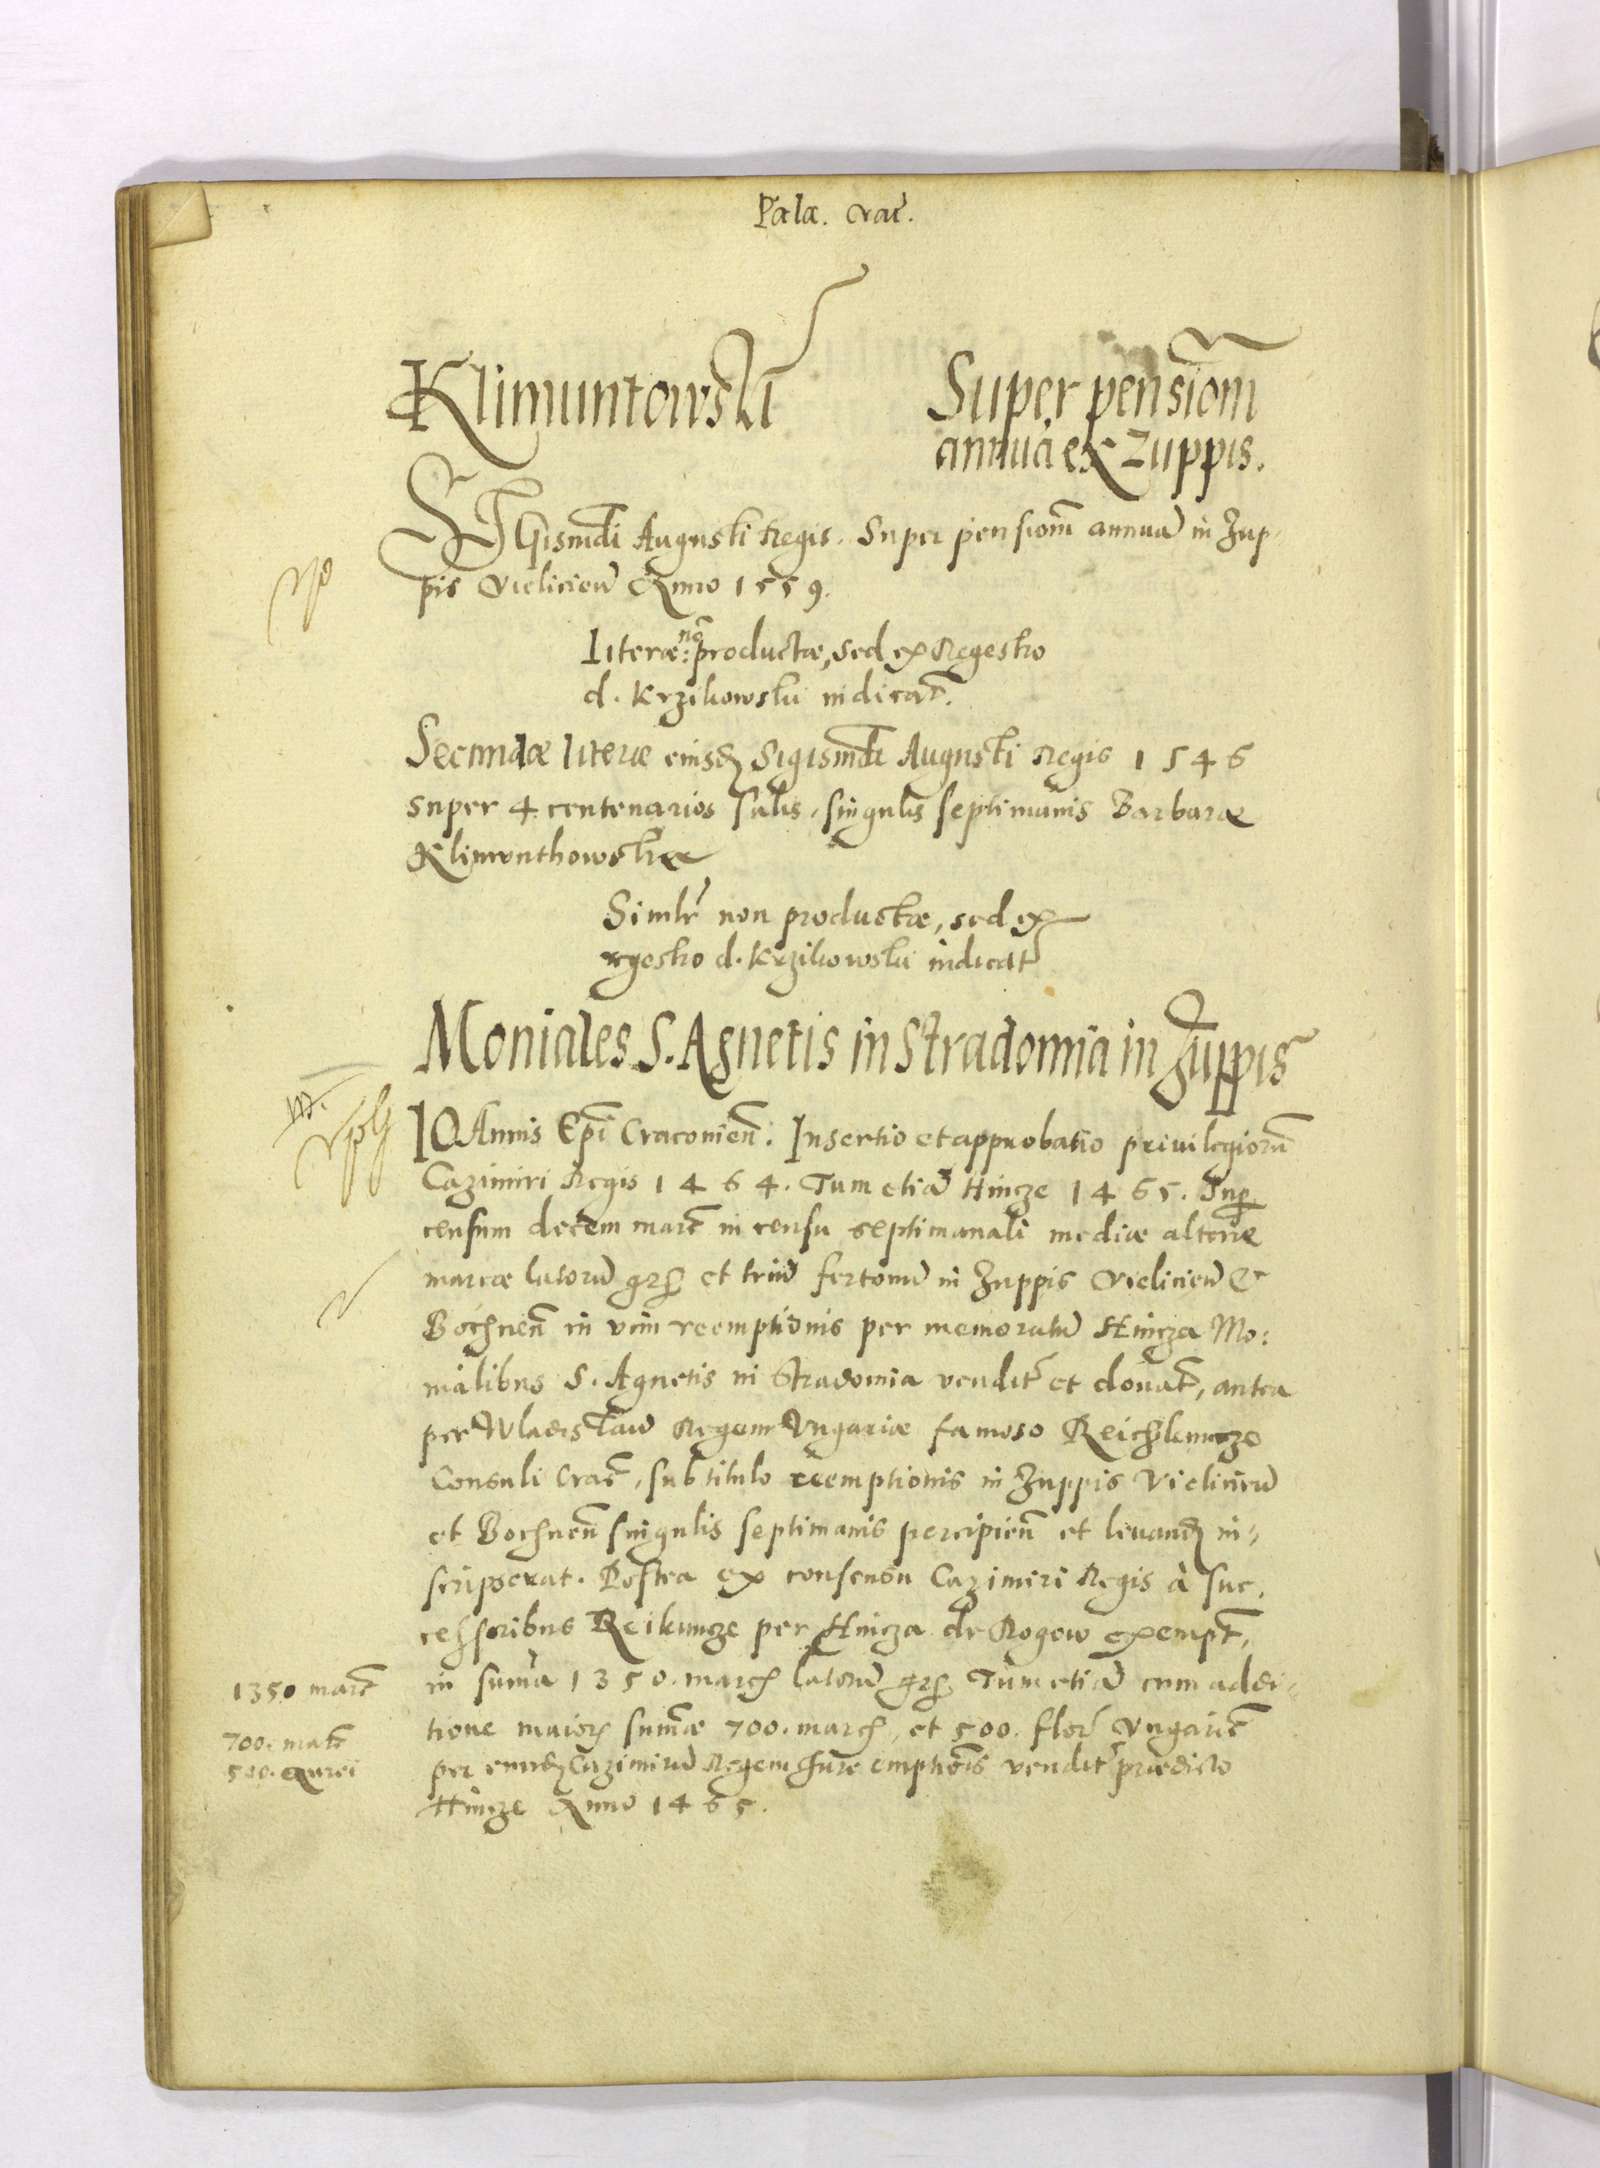 Palæ. Crac.
Klimuntowski
Super pensionē
annuā ex Zuppis.
SIGismūdi Augusti Regis. Super pensionē annuā in Zup-
pis Vieliciēn Anno 1559.
Literæ nō productæ, sed ex Regestro
d. Krzikowski indicat.
Secundæ literæ eiusdē Sigismūdi Augusti Regis 1546
super 4 centenarios salis, singulis septimanis Barbaræ
Klimunthowskæ
Similr non productæ, sed ex
rgestro d. Krzikowski indicat
Moniales S. Agnetis in Stradomia in Zuppis
IOAnnis Epi Cracovien. Insertio et approbatio privilegiorū
Cazimiri Regis 1464. Tum etiā Hincze 1465. Sup
censum decem marc in censu septimanali mediæ alteræ
marcæ latorū grs et triū fertonū in Zuppis Vieliciēn &
Bochnen in vim reemptionis per memoratū Hincza Mo:
nialibus S. Agnetis in Stradomia vendit et donat, antea
per Wladislaū Regem Vngariæ famoso Reichlemcze
Consuli Crac, sub titulo reemptionis in Zuppis Vieliciēn
et Bochnen singulis septimanis percipien et levand in-
scripserat. Postea ex consensu Cazimiri Regis à suc,
cessoribus Reikuncze per Hincza de Rogow exempt,
in suma 1350. marcz latorū grs Tum etiā cum addi-
1350 marc
tione maioris sumæ 700. marcz, et 500. flor Vngaric
700. marc
per eundē Cazimirū Regem Iure emptionis vendit prædicto
500. Aurei
Hincze Anno 1465.